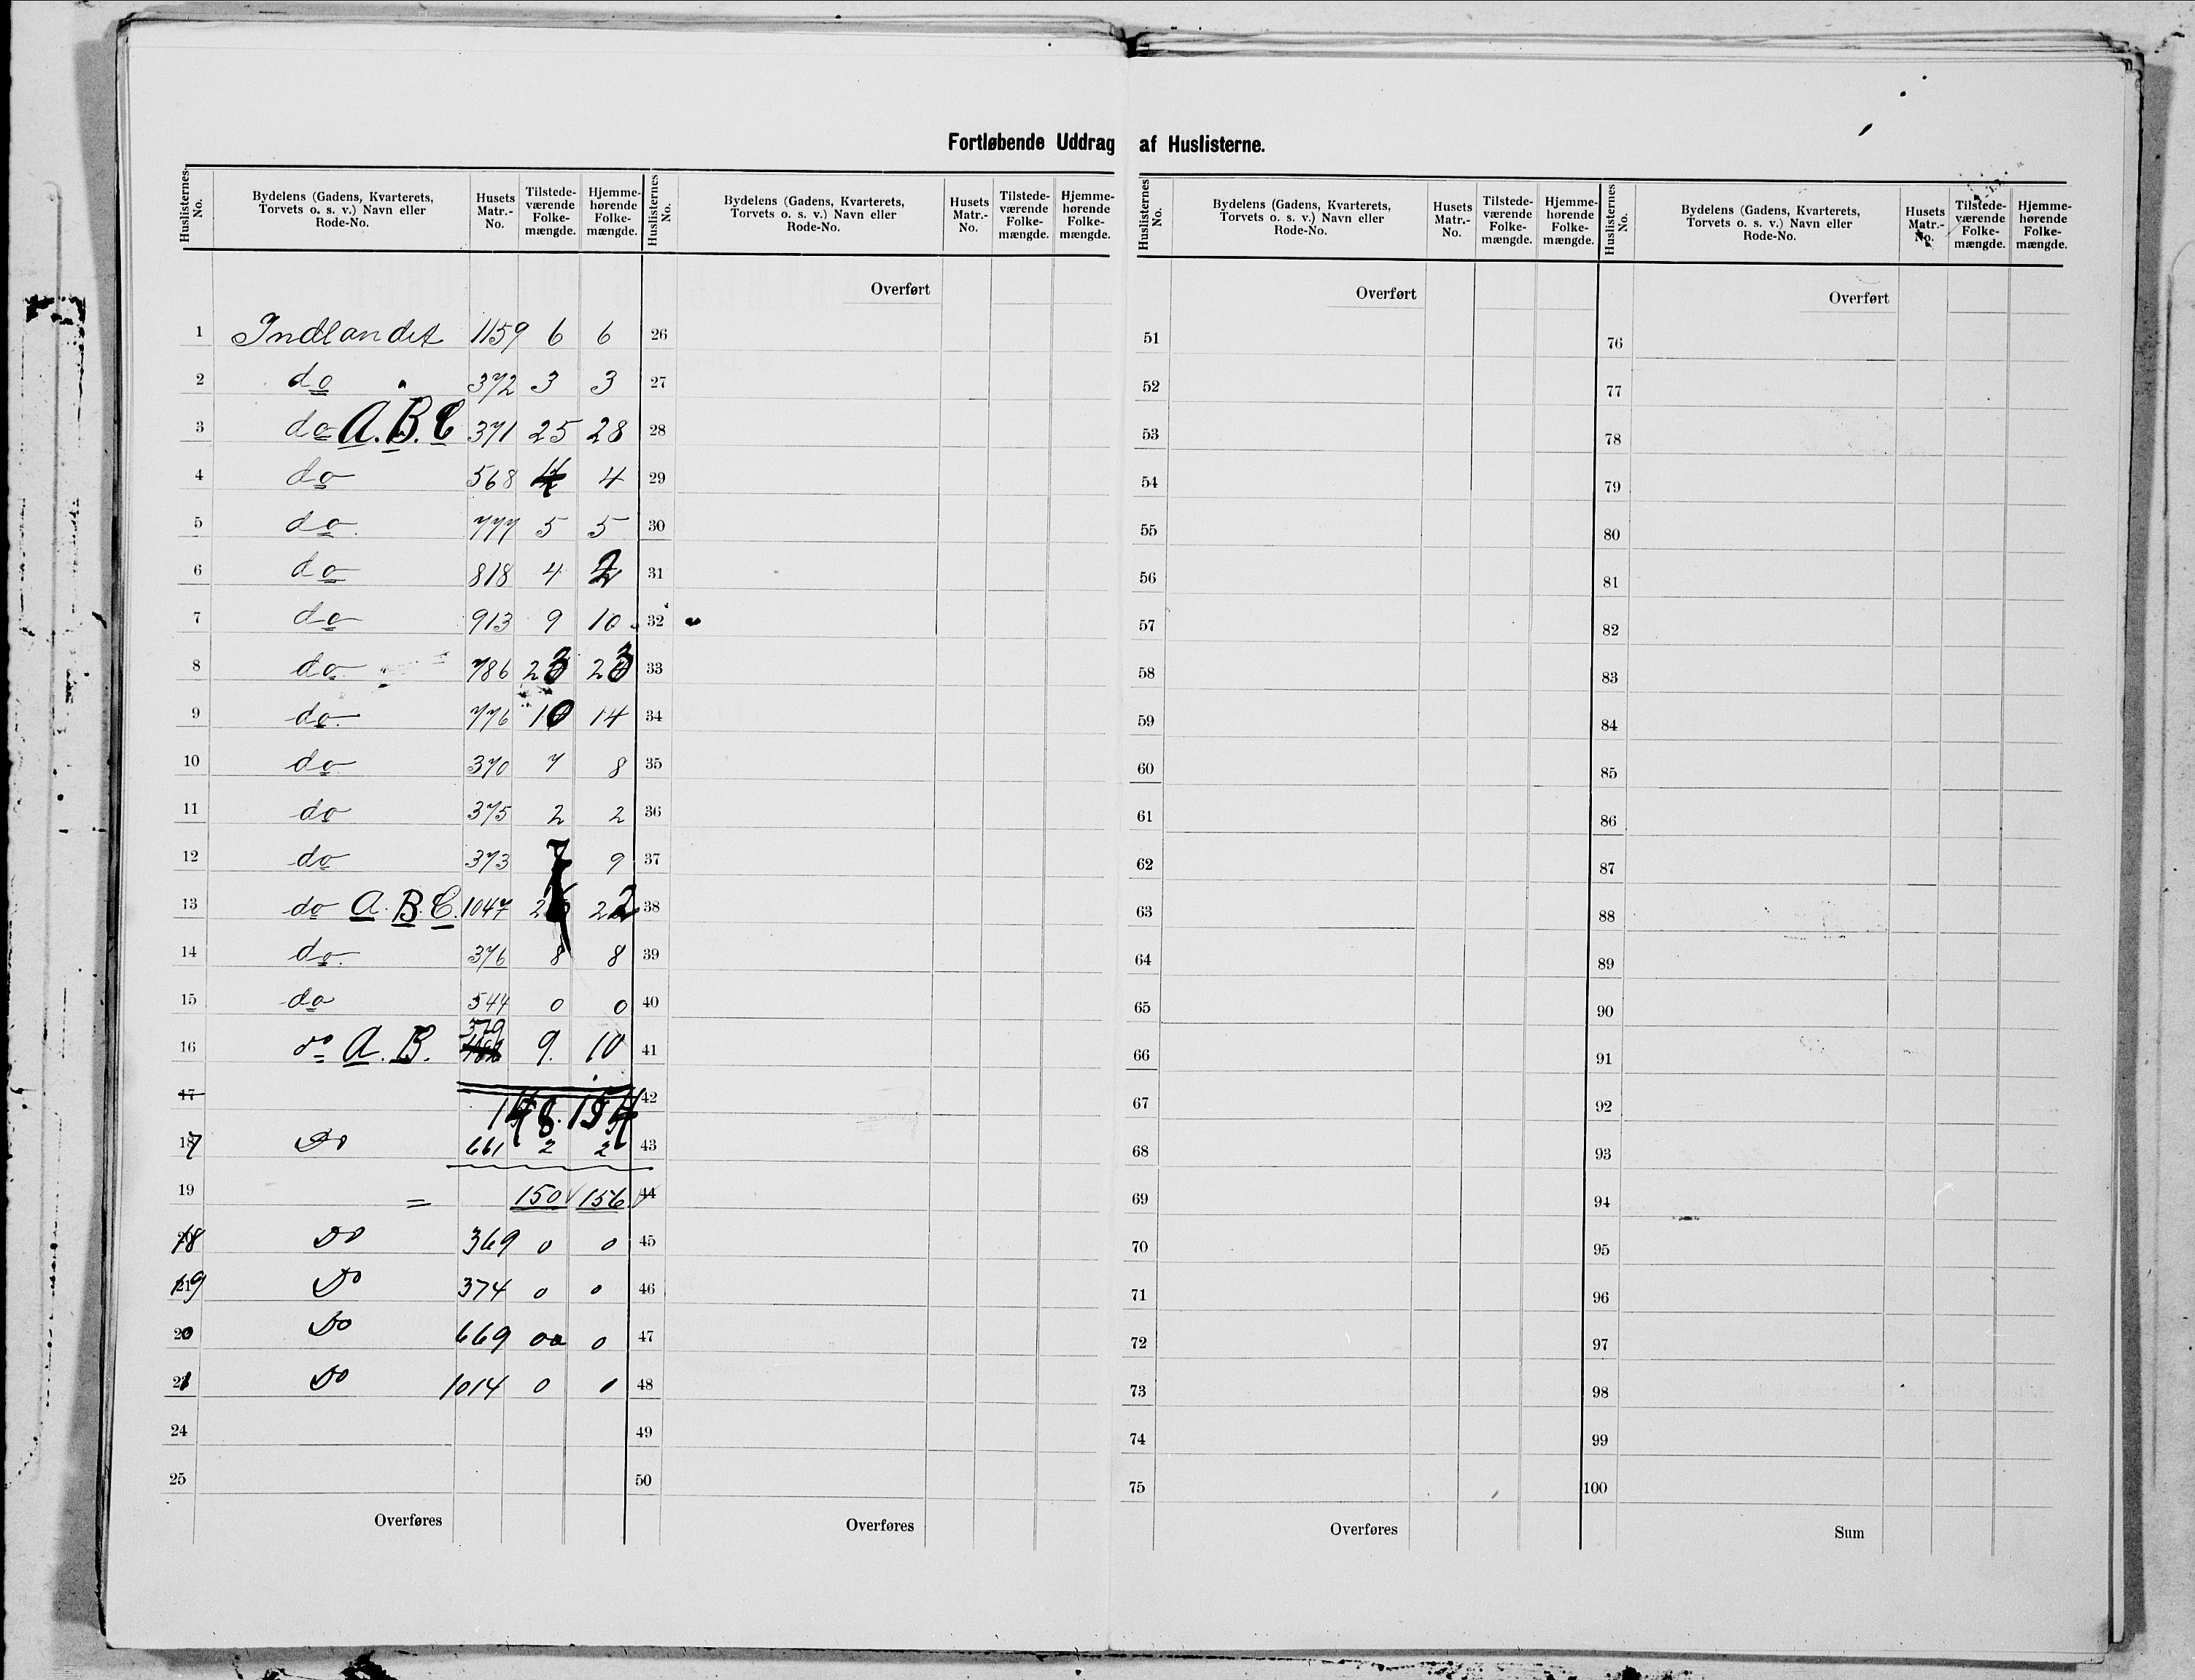 Fortløbende Uddrag af Huslisterne.
Huslisternes No. Bydelens (Gadens, Kvarterets, Torvets o. s. v.) Navn eller Rode-No. Husets Matr.-No. Tilstede-værende Folke-mængde. Hjemme-hørende Folke-mængde.
1 Indlandet 1159 6 6
2 do 372 3 3
3 do A. B. C 371 25 28
4 do 568 4 4
5 do 777 5 5
6 do 818 4 2
7 do 913 9 10
8 do 786 23 23
9 do 776 10 14
10 do 370 7 8
11 do 375 2 2
12 do 373 7 9
13 do A. B. C. 1047 22
14 do 376 8 8
15 do 544 0 0
16 do A. B. 379 9. 10
17
148. 154
17 Do 661 2 2
19 = 150 156
18 Do 369 0 0
19 Do 374 0 0
20 Do 669 0 0
21 Do 1014 0
24
25
Overføres
Huslisternes No. Bydelens (Gadens, Kvarterets, Torvets o. s. v.) Navn eller Rode-No. Husets Matr.-No. Tilstede-værende Folke-mængde. Hjemme-hørende Folke-mængde.
Overført
26
27
28
29
30
31
32
33
34
35
36
37
38
39
40
41
42
43
44
45
46
47
48
49
50
Overføres
Huslisternes No. Bydelens (Gadens, Kvarterets, Torvets o. s. v.) Navn eller Rode-No. Husets Matr.-No. Tilstede-værende Folke-mængde. Hjemme-hørende Folke-mængde.
Overført
51
52
53
54
55
56
57
58
59
60
61
62
63
64
65
66
67
68
69
70
71
72
73
74
75
Overføres
Huslisternes No. Bydelens (Gadens, Kvarterets, Torvets o. s. v.) Navn eller Rode-No. Husets Matr.-No. Tilstede-værende Folke-mængde. Hjemme-hørende Folke-mængde.
Overført
76
77
78
79
80
81
82
83
84
85
86
87
88
89
90
91
92
93
94
95
96
97
98
99
100
Sum